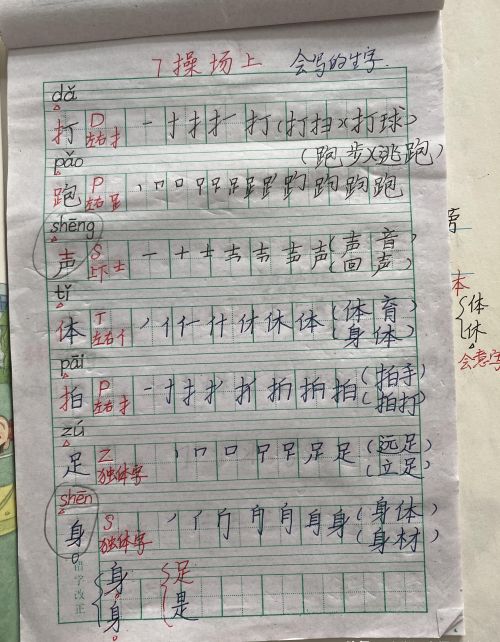 7 操场上 会写的生字
dǎ
打 D 左右 扌 一 扌 扌 扩 打 (打扫)(打球)
pǎo (跑步)(逃跑)
跑 P 左右 𧾷 跑 跑 跑 跑
shēng
声 S 上下 士 一 十 士 声 (声音)
(回声)
tǐ
体 T 左右 亻 丿 亻 仁 什 休 休 体 (体育)
(身体)
pāi
拍 P 左右 扌 一 扌 扌 拍 拍 拍 (拍手)
(拍打)
zú
足 Z 独体字 丨 口 口 足 足 (远足)
(立足)
shēn
身 S 独体字 丿 身 身 (身体)
(身材)
错字改正
身 足
身 是
本
体
休
会意字